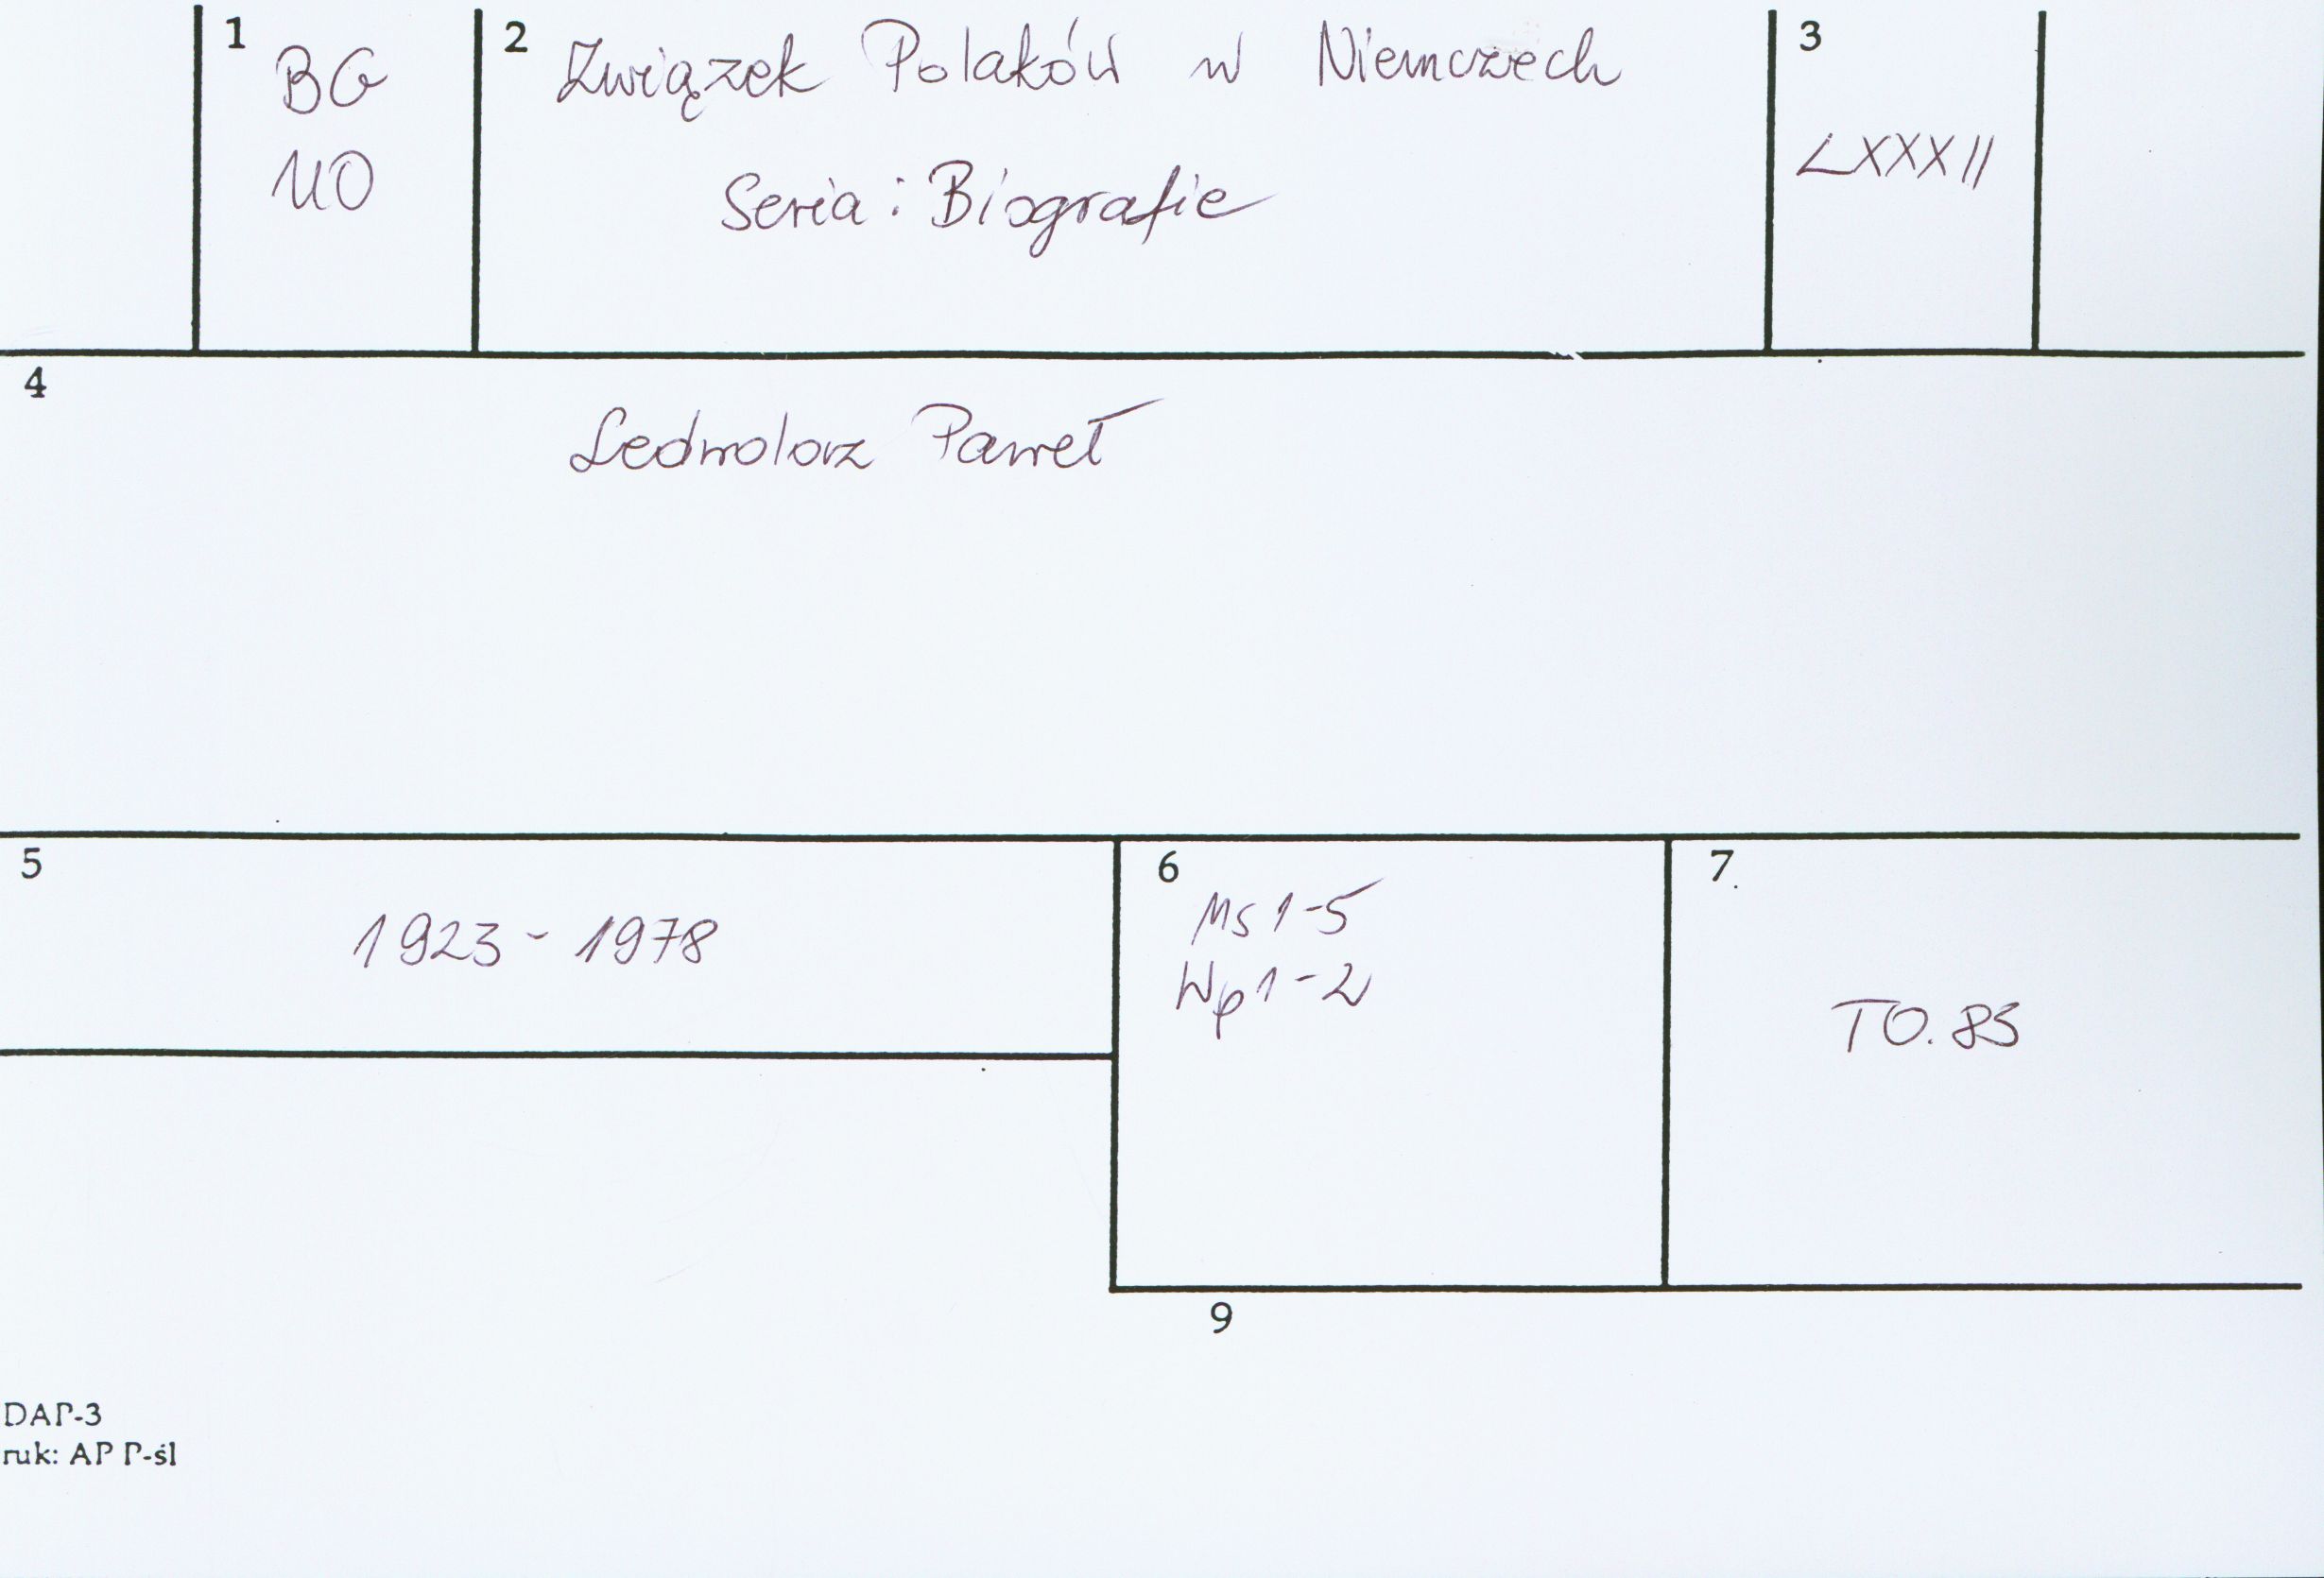 1
BG
UO
2
Związek Polaków w Niemczech
Seria: Biografie
3
LXXXII
4
Ledwolorz Paweł
5
1923 - 1978
6
Ms 1-5
Wp 1-2
7.
TO. 85
9
DAP-3
ruk: AP P-śl